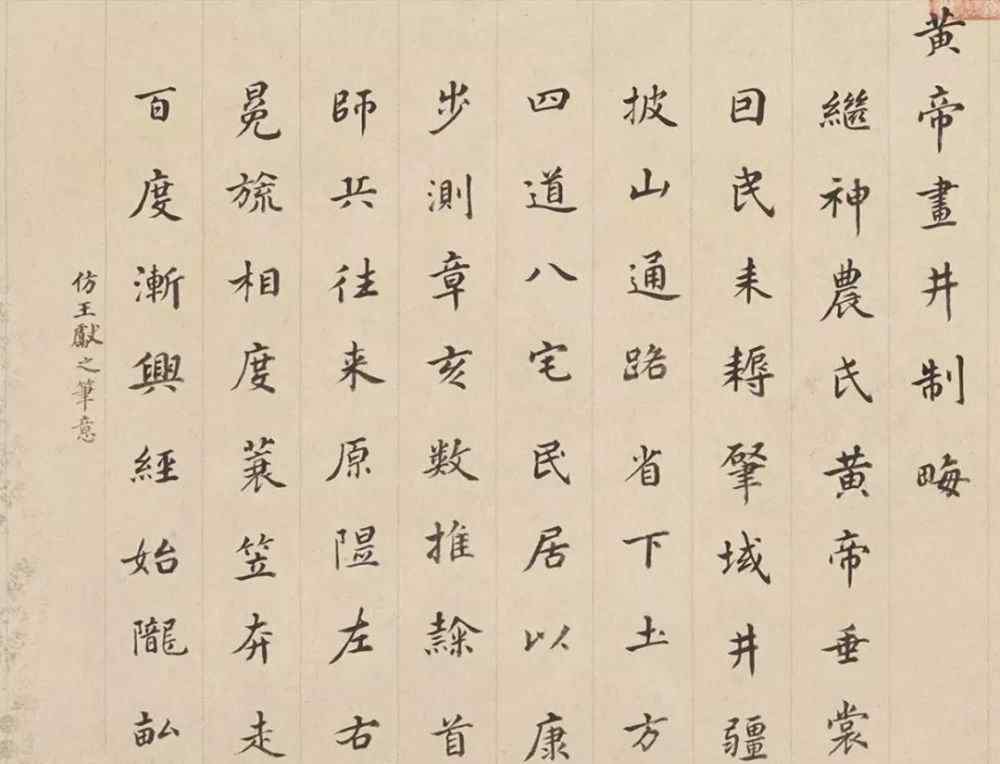 黄帝畫井制畮
繼神農氏黄帝垂裳
囙民耒耨肇域井疆
披山通路省下土方
四道八宅民居以康
步測章亥数推隸首
師兵往来原隰左右
冕旒相度蓑笠奔走
百度漸興經始隴畝
仿王獻之筆意